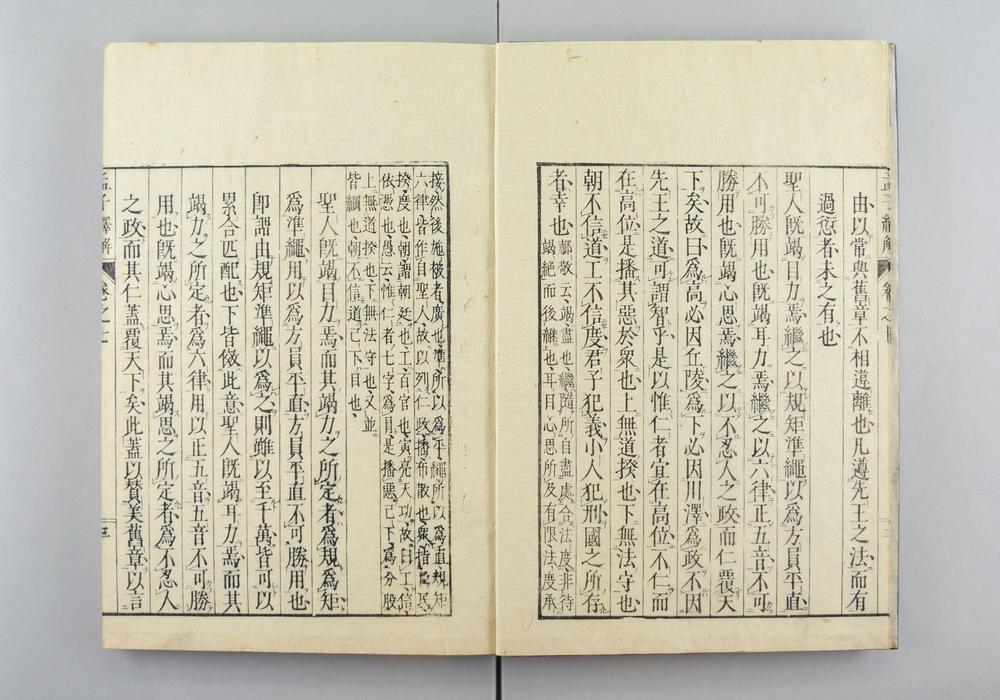 由以常與舊章不相違離也凡遵先王之法而有
過愆者未之有也
聖人既竭目力焉繼之以規矩準繩以爲方員平直
不可勝用也既竭耳力焉繼之以六律正五音不可
勝用也既竭心思焉繼之以不忍人之政而仁覆天
下矣故曰爲高必因丘陵爲下必因川澤爲政不因
先王之道可謂智乎是以惟仁者宜在高位不仁而
在高位是播其惡於衆也上無道揆也下無法守也
朝不信道工不信度君子犯義小人犯刑國之所存
者幸也
郝敬云竭盡也繼隨所自盡處合法度非待
竭絕而後繼也耳目心思所及有限法度承
接然後施被者廣也準所以爲平繩所以爲直規矩
六律皆作自聖人故以列仁政播布散也衆指民
揆度也朝謂朝廷也工百官也寅亮天功故曰工信
依憑也愚云惟仁者七字爲肩是播惡已下爲分股
上無道揆也下無法守也又並
皆綱也朝不信道已下目也
聖人既竭目力焉而其竭力之所定者爲規爲矩
爲準繩用以爲方員平直方員平直不可勝用也
即謂由規矩準繩以爲之則雖以至千萬皆可以
累合匹配也下皆倣此意聖人既竭耳力焉而其
竭力之所定者爲六律用以正五音五音不可勝
用也既竭心思焉而其竭思之所定者爲不忍人
之政而其仁蓋覆天下矣此蓋以贊美舊章以言
孟子繹解
卷之七